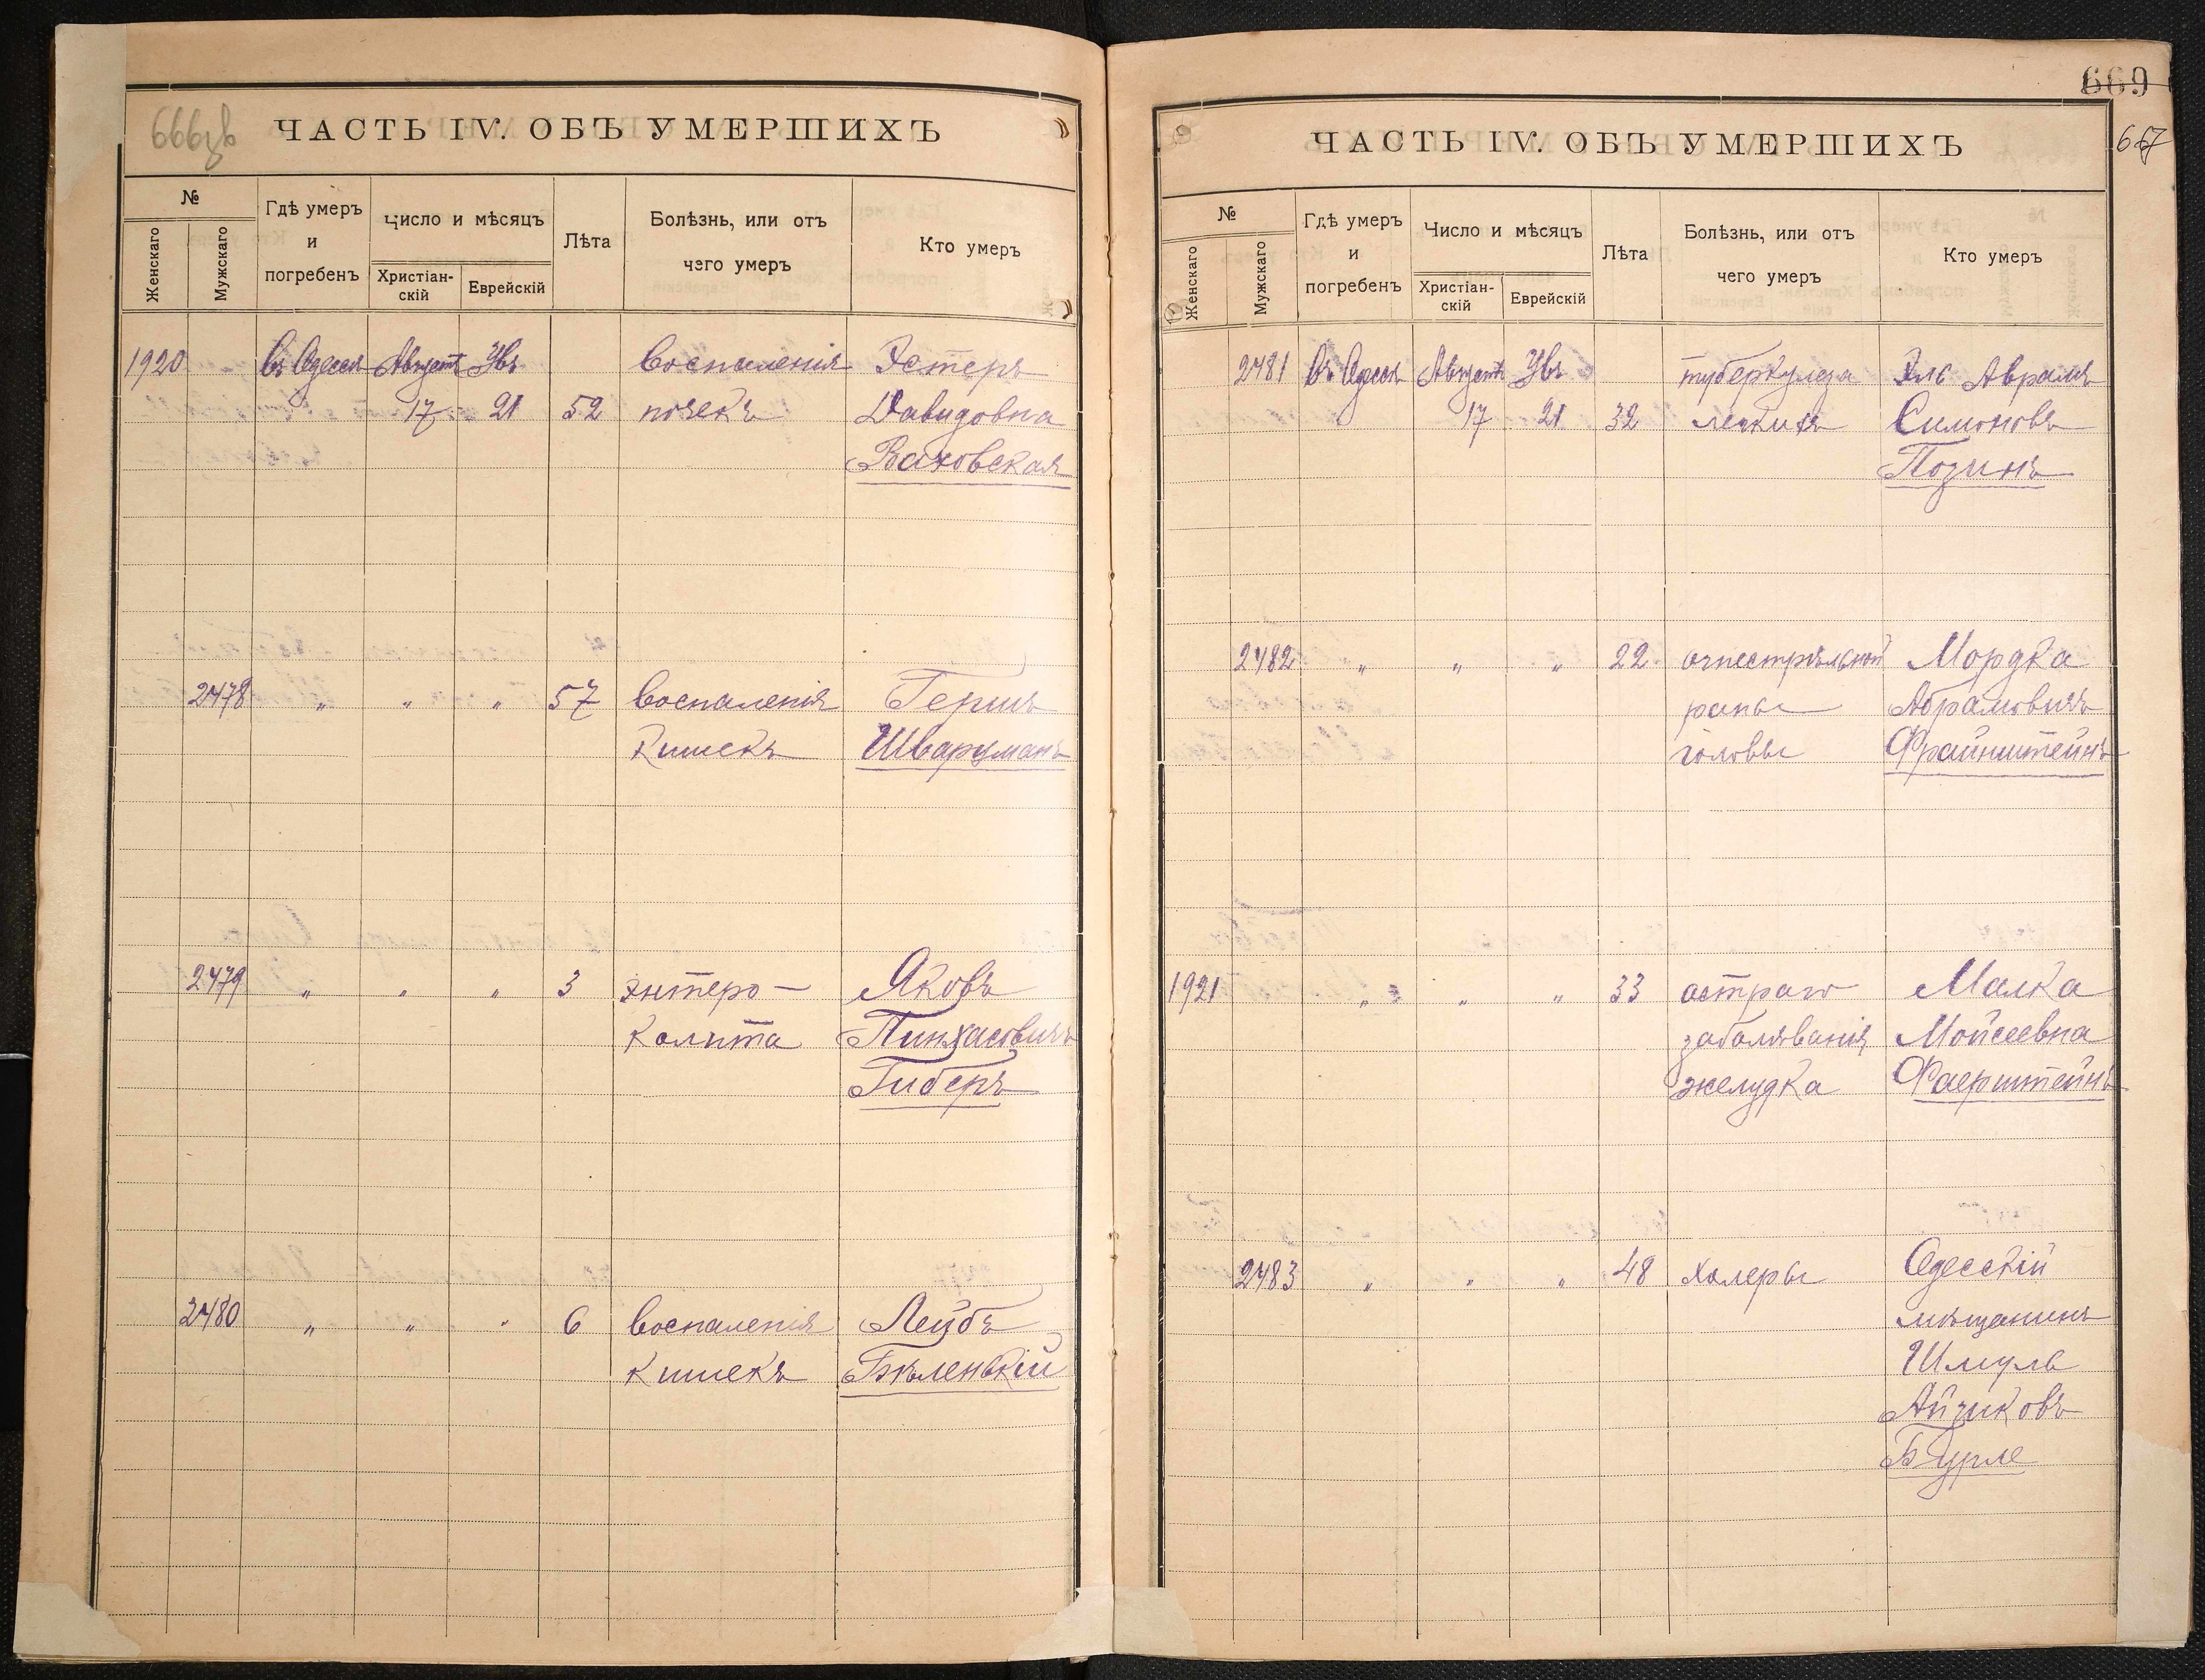 666об
ЧАСТЬ IV. ОБЪ УМЕРШИХЪ
№
Женскаго
Мужскаго
Гдѣ умеръ
и
погребенъ
Число и мѣсяцъ
Христіан-
скій
Еврейскій
Лѣта
Болѣзнь, или отъ
чего умеръ
Кто умеръ
1920 въ Одессѣ Августъ Убъ Воспаленія Эстеръ
17 21 52 почекъ Давидовна
Ваховская
2478 „ „ „ 57 Воспаленія Гершъ
Кишекъ Шварцманъ
2479 „ „ „ 3 энтеро- Яковъ
Колита Пинхасовичъ
Гиберъ
2480 „ „ „ 6 Воспаленія Лейбъ
Кишекъ Бѣленькій
669
667
ЧАСТЬ IV. ОБЪ УМЕРШИХЪ
№
Женскаго
Мужскаго
Гдѣ умеръ
и
погребенъ
Число и мѣсяцъ
Христіан-
скій
Еврейскій
Лѣта
Болѣзнь, или отъ
чего умеръ
Кто умеръ
2481 Въ Одессѣ Августъ Убъ туберкулеза Эль Аврамъ
17 21 32 легкихъ Симоновъ
Позинъ
2482 „ „ „ 22 огнестрѣльной Мордка
раны Абрамовичъ
головы Файнштейнъ
1921 „ „ „ 33 остраго Малка
заболѣванія Мойсеевна
желудка Фаерштейнъ
2483 „ „ „ 48 холеры Одесскій
мѣщанинъ
Шмуль
Айзиковъ
Бурле